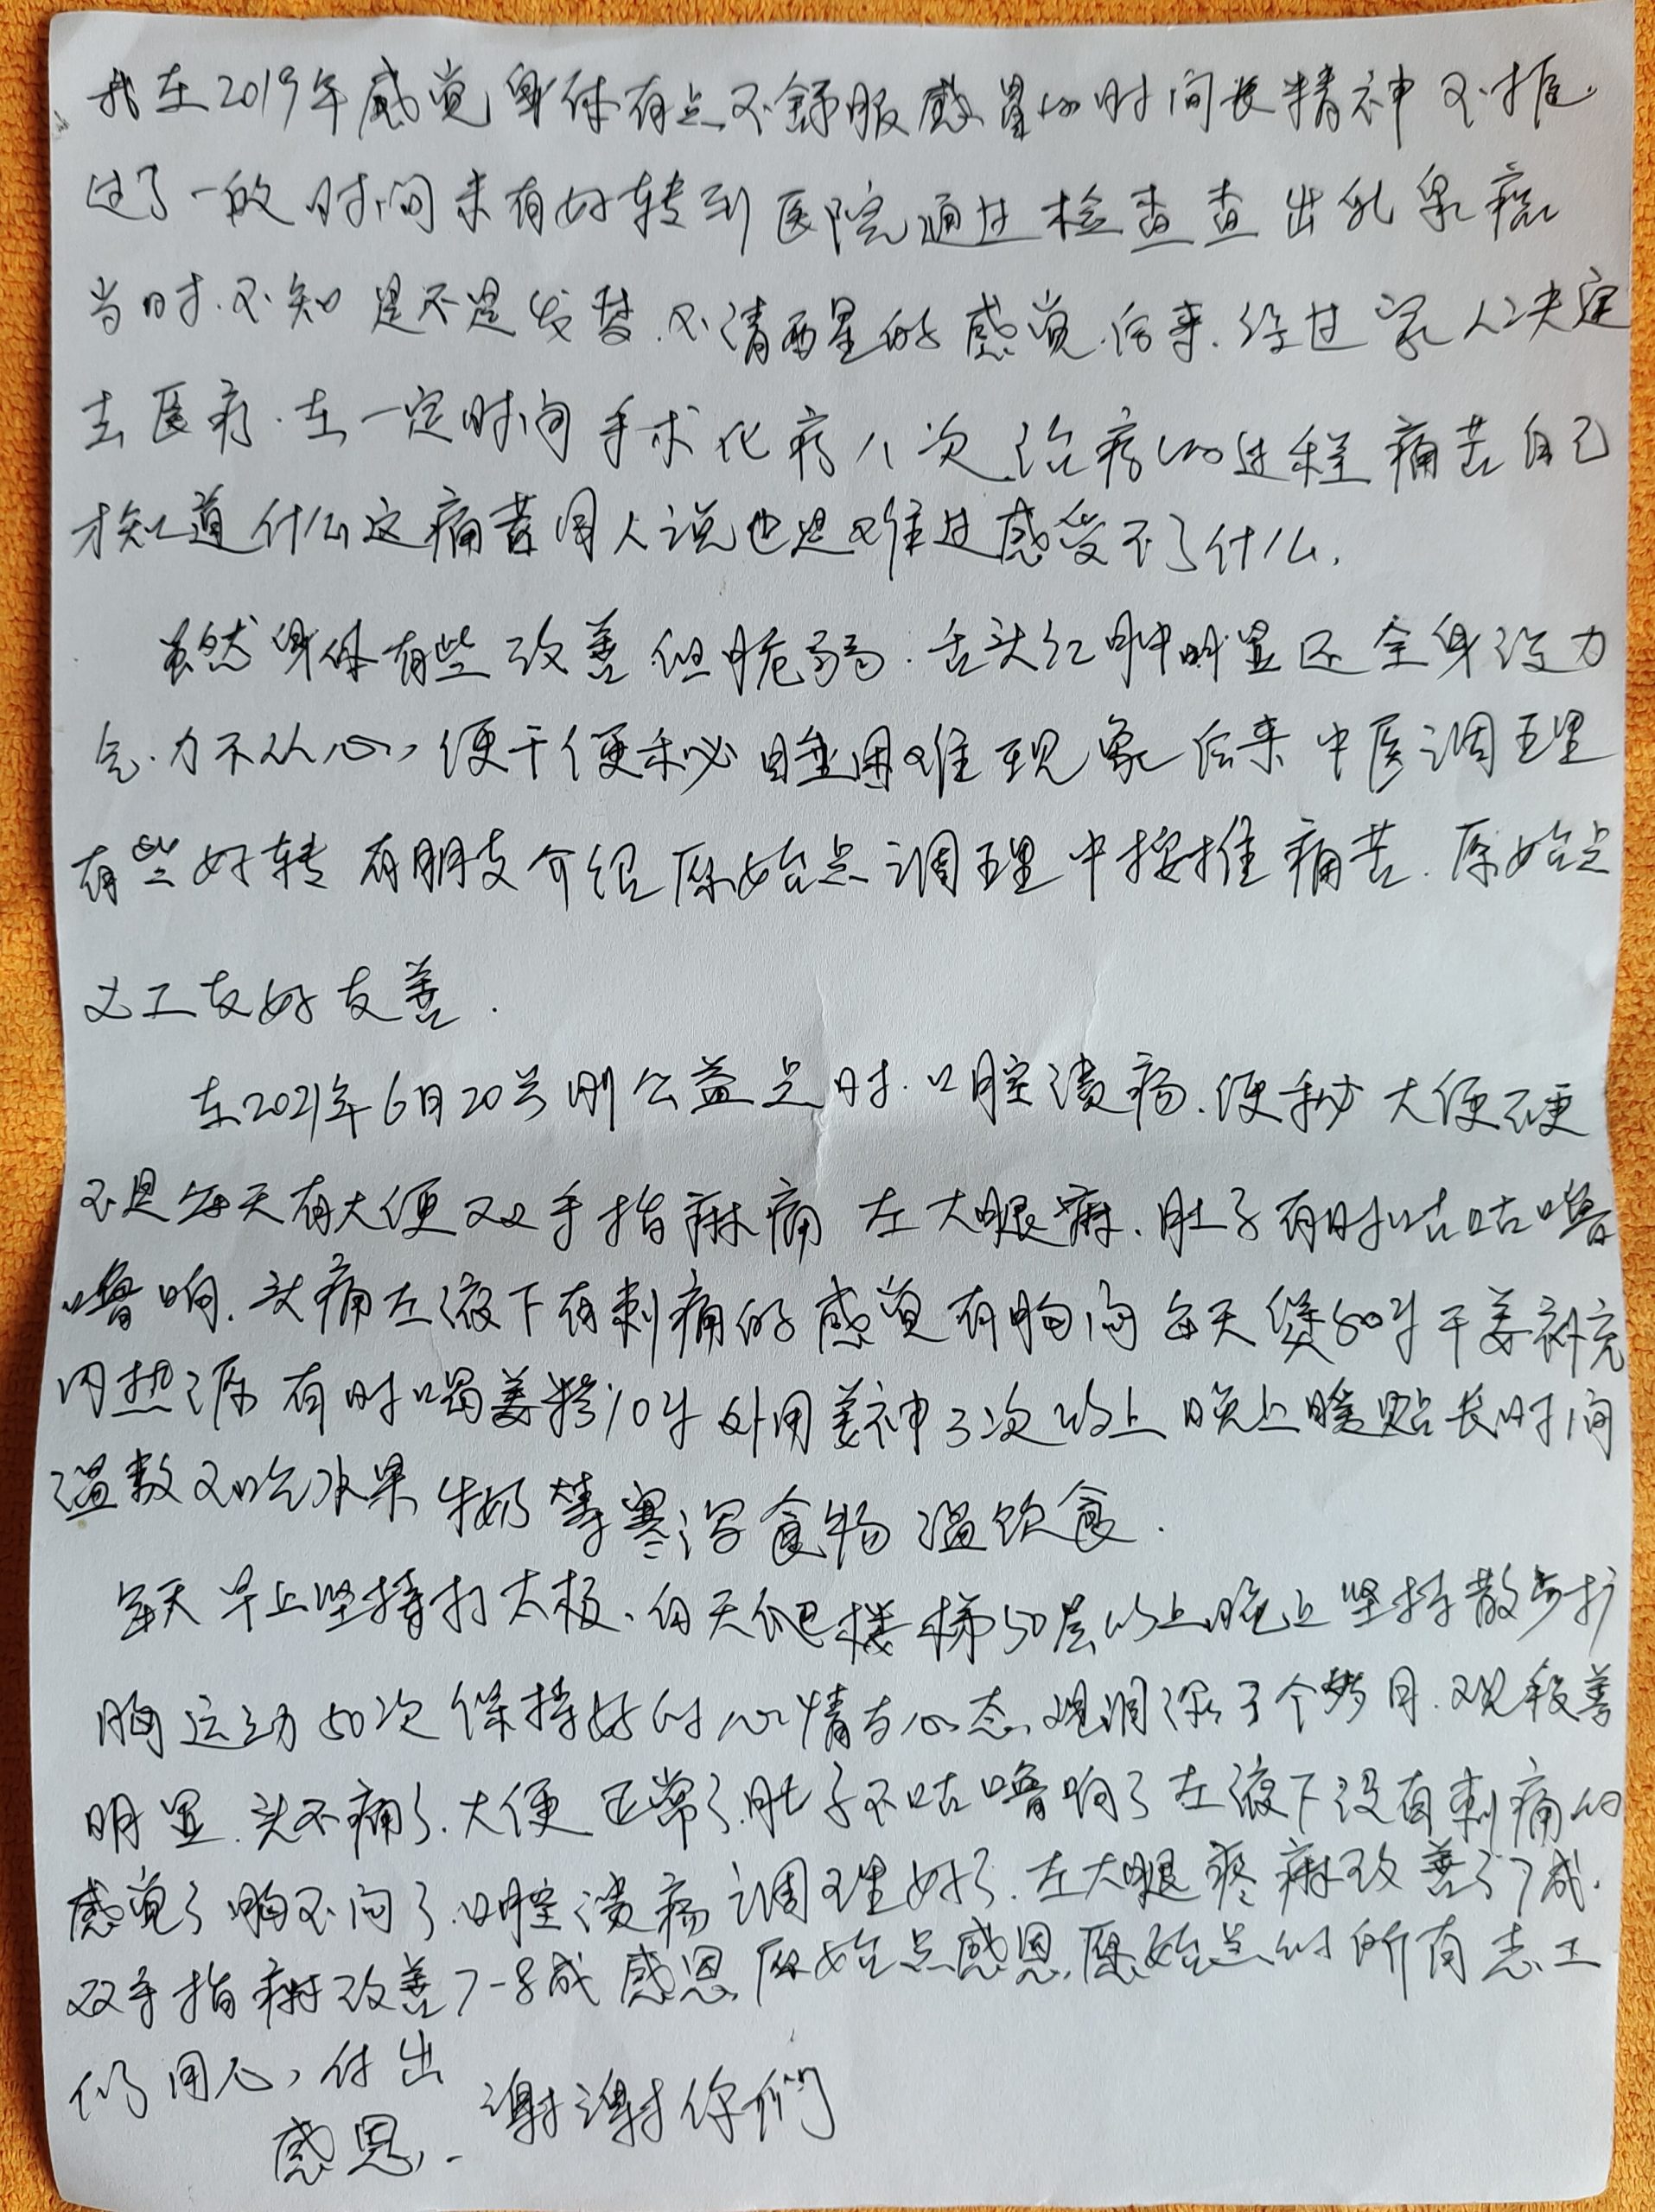 我在2019年感觉身体有点不舒服感冒的时间长精神不振.
过了一段时间未有好转到医院通过检查查出乳泉癌
当时.不知是不是发梦.不清醒的感觉.后来.经过家人决定
去医疗.在一定时间手术化疗八次治疗的过程痛苦自己
才知道什么这痛苦同人说也是难过感受不了什么.
虽然身体有些改善但脆弱.舌头红肿明显还全身没力
气.力不从心,便干便秘睡困难现象后来中医调理
有些好转有朋友介绍原始点调理中按推痛苦.原始点
义工友好友善.
在2021年6月20号刚公益点时.口腔溃疡.便秘大便硬
不是每天有大便双手指麻痛左大腿麻.肚子有时咕咕噜
噜响.头痛左液下有刺痛的感觉有胸闷每天煲50g干姜补充
内热源有时喝姜粉10g外用姜神3次以上晚上暖贴长时间
温敷不吃水果牛奶等寒湿食物温饮食.
每天早上坚持打太极.白天爬楼梯50层以上晚上坚持散步扩
胸运动50次保持好的心情与心态.调了个多月.改善
明显.头不痛了.大便正常了.肚子不咕噜响了左液下没有刺痛的
感觉了胸不闷了.口腔溃疡调理好了.左大腿疼麻改善了7成.
双手指麻改善7-8成感恩原始点感恩.原始点的所有志工
们用心,付出
感恩.. 谢谢你们